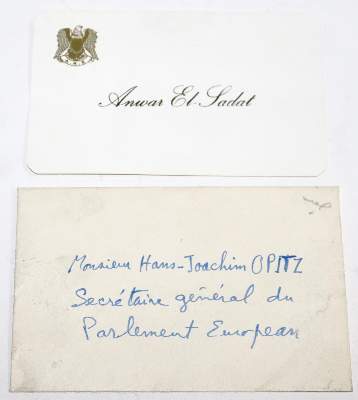 Anwar El-Sadat
Monsieur Hans-Joachim OPITZ
Secrétaire général du
Parlement European